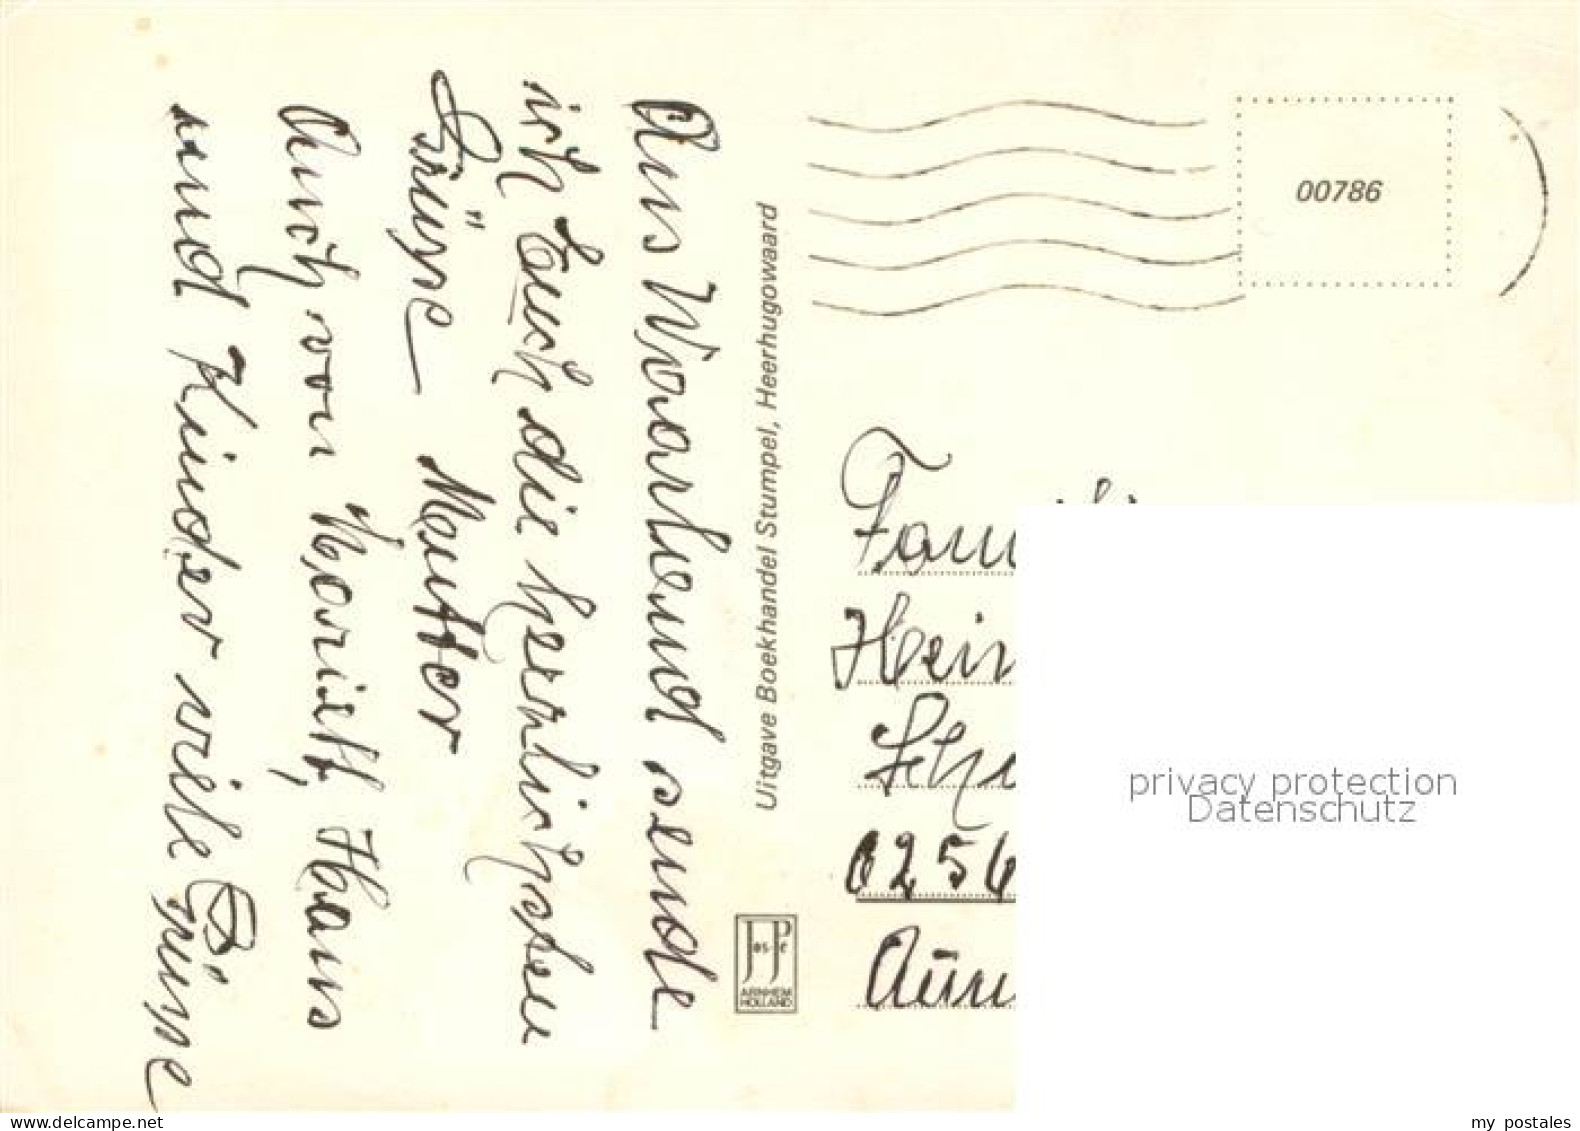 Aus Waarland sende
ich Euch die herzlichsten
Grüsse Mutter
Auch von Mariett, Hans
und Kinder viele Grüsse
Uitgave Boekhandel Stumpel, Heerhugowaard
JosPe
ARNHEM
HOLLAND
00786
Fam
Hein
0256
privacy protection
Datenschutz
my postales